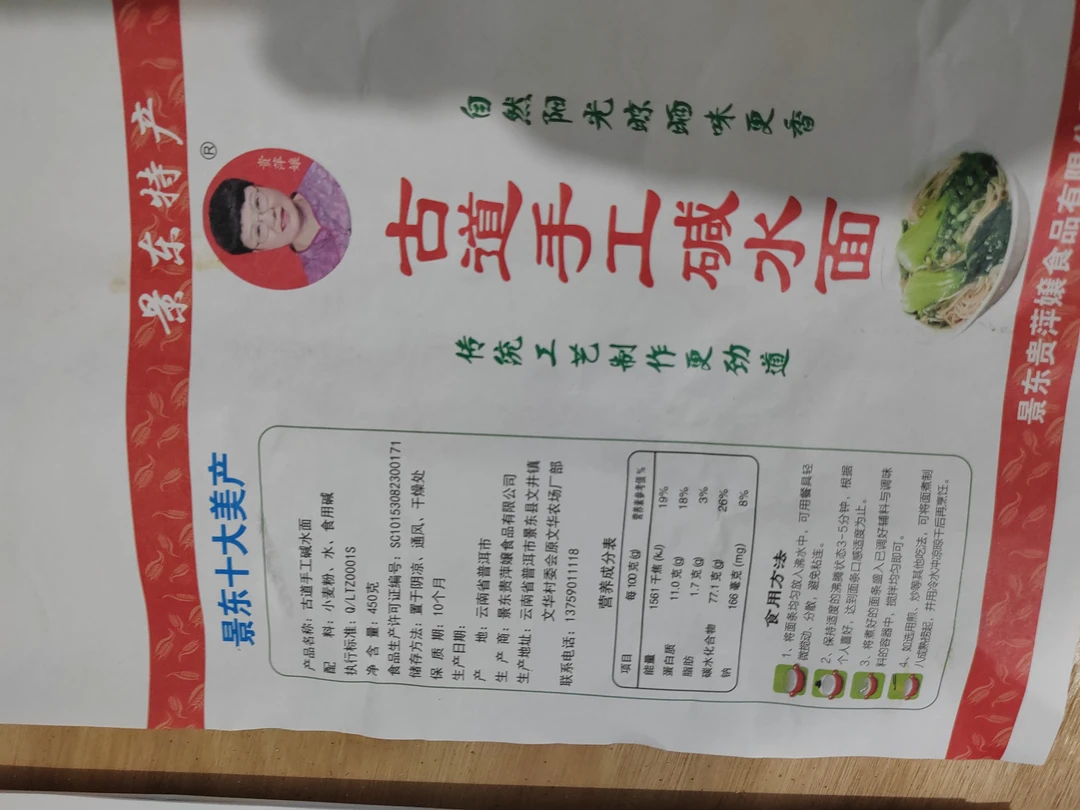 景东特产
®
贵萍娘
景东十大美产
自然阳光晾晒味更香
古道手工碱水面
传统工艺制作更劲道
产品名称：古道手工碱水面
配 料：小麦粉、水、食用碱
执行标准：Q/LTZ0001S
净 含 量：450克
食品生产许可证编号：SC10153082300171
储存方法：置于阴凉、通风、干燥处
保 质 期：10个月
生产日期：
产 地：云南省普洱市
生 产 商：景东贵萍嬢食品有限公司
生产地址：云南省普洱市景东县文井镇
文华村委会原文华农场厂部
联系电话：13759011118
营养成分表
项目 每100克(g) 营养素参考值%
能量 1561千焦(kJ) 19%
蛋白质 11.0克(g) 18%
脂肪 1.7克(g) 3%
碳水化合物 77.1克(g) 26%
钠 166毫克(mg) 8%
食用方法
1、将面条均匀放入沸水中，可用餐具轻
微搅动、分散，避免粘连。
2、保持适度的沸腾状态3-5分钟，根据
个人喜好，达到面条口感适度为止。
3、将煮好的面条盛入已调好辅料与调味
料的容器中，搅拌均匀即可。
4、如选用煎、炒等其他吃法，可将面煮制
八成熟捞起，并用冷水冲凉晾干后再烹饪。
景东贵萍嬢食品有限